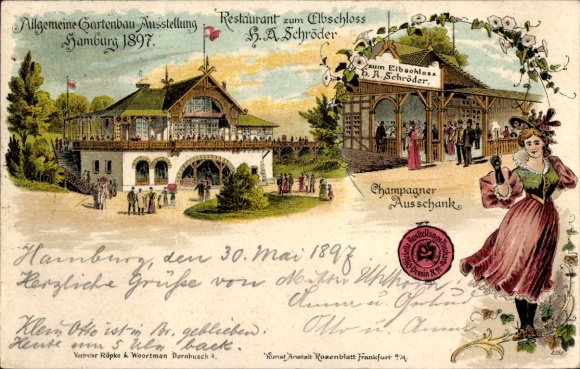 Allgemeine Gartenbau-Ausstellung
Hamburg 1897.
Restaurant zum Elbschloss
H. A. Schröder
zum Elbschloss
H. A. Schröder.
Champagner
Ausschank
Hamburg, den 30. Mai 1897
Herzliche Grüße von
Anna u.
Otto u. Anna
Klein Otto ist in Br. geblieben.
Heute um 5 Uhr back.
Vertreter Röpke & Woortman Dornbusch 4.
Kunst Anstalt Rosenblatt Frankfurt a/M.